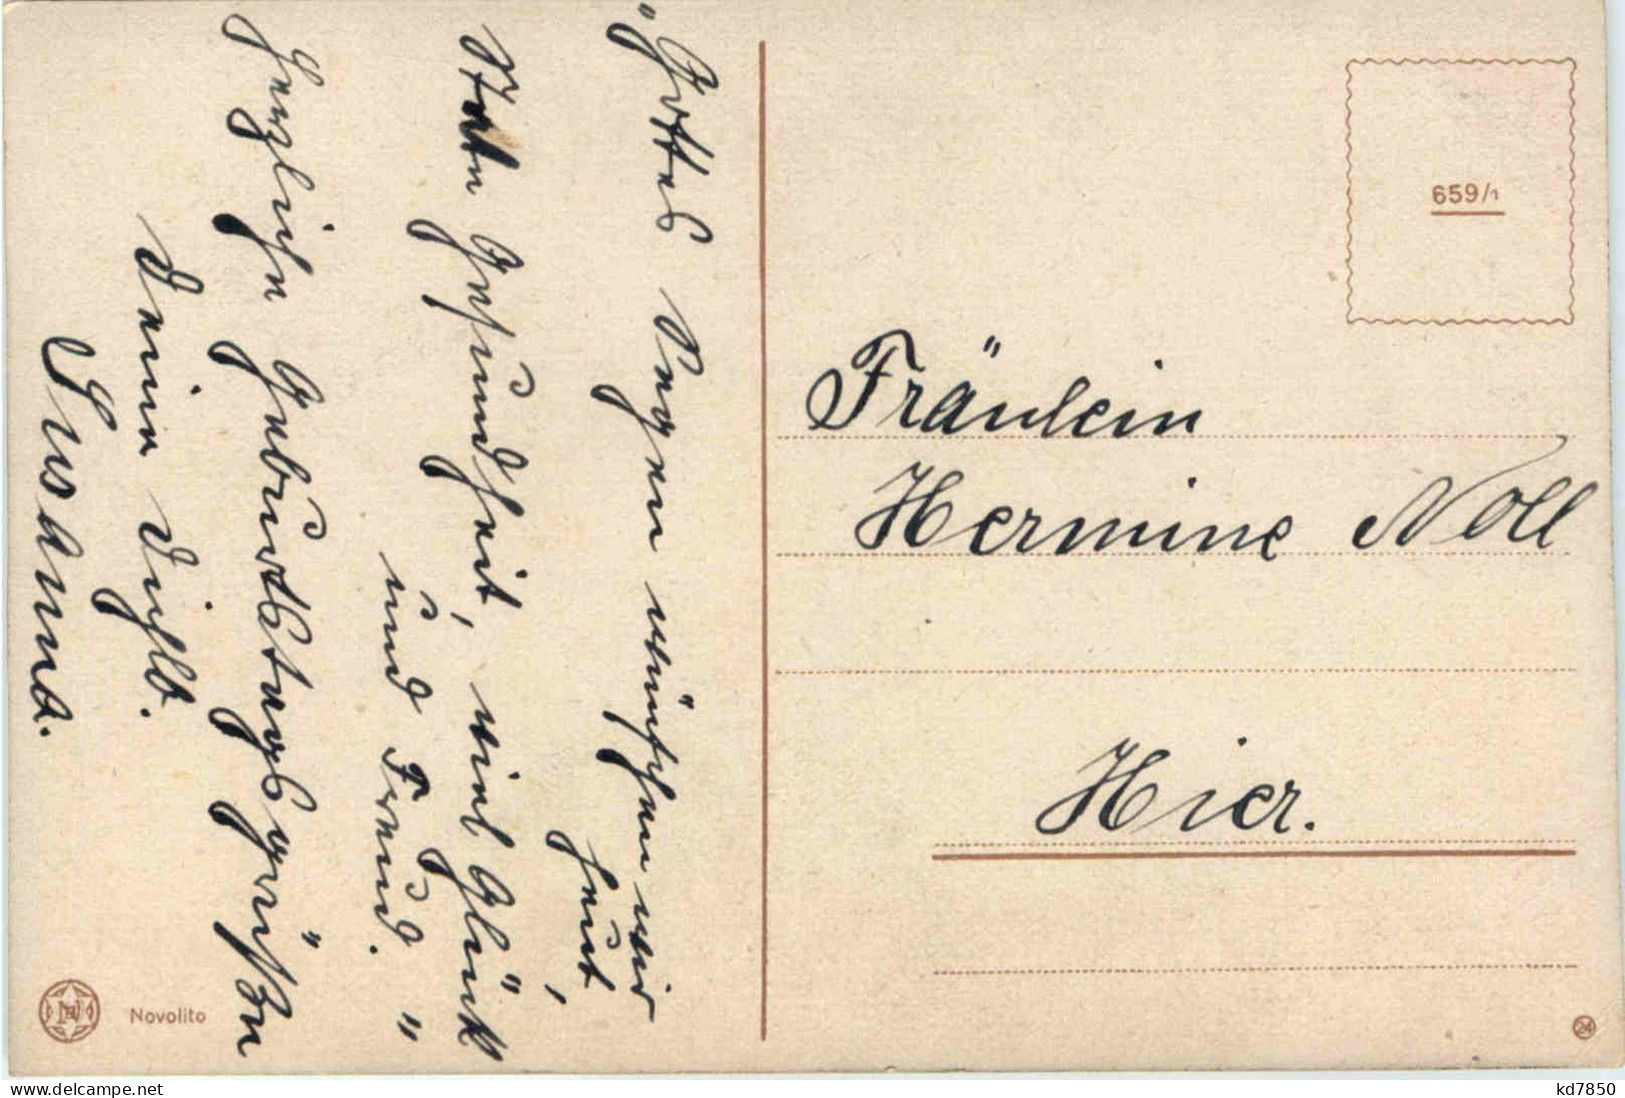 „Gottes Segen wünschen wir
heut,
Stets Gesundheit, viel Glück
und Freud.“
Herzliche Geburtstagsgrüße
Deine Dichlb.
Susanna.
Fräulein
Hermine Noll
Hier.
659/1
Novolito
24
www.delcampe.net
kd7850